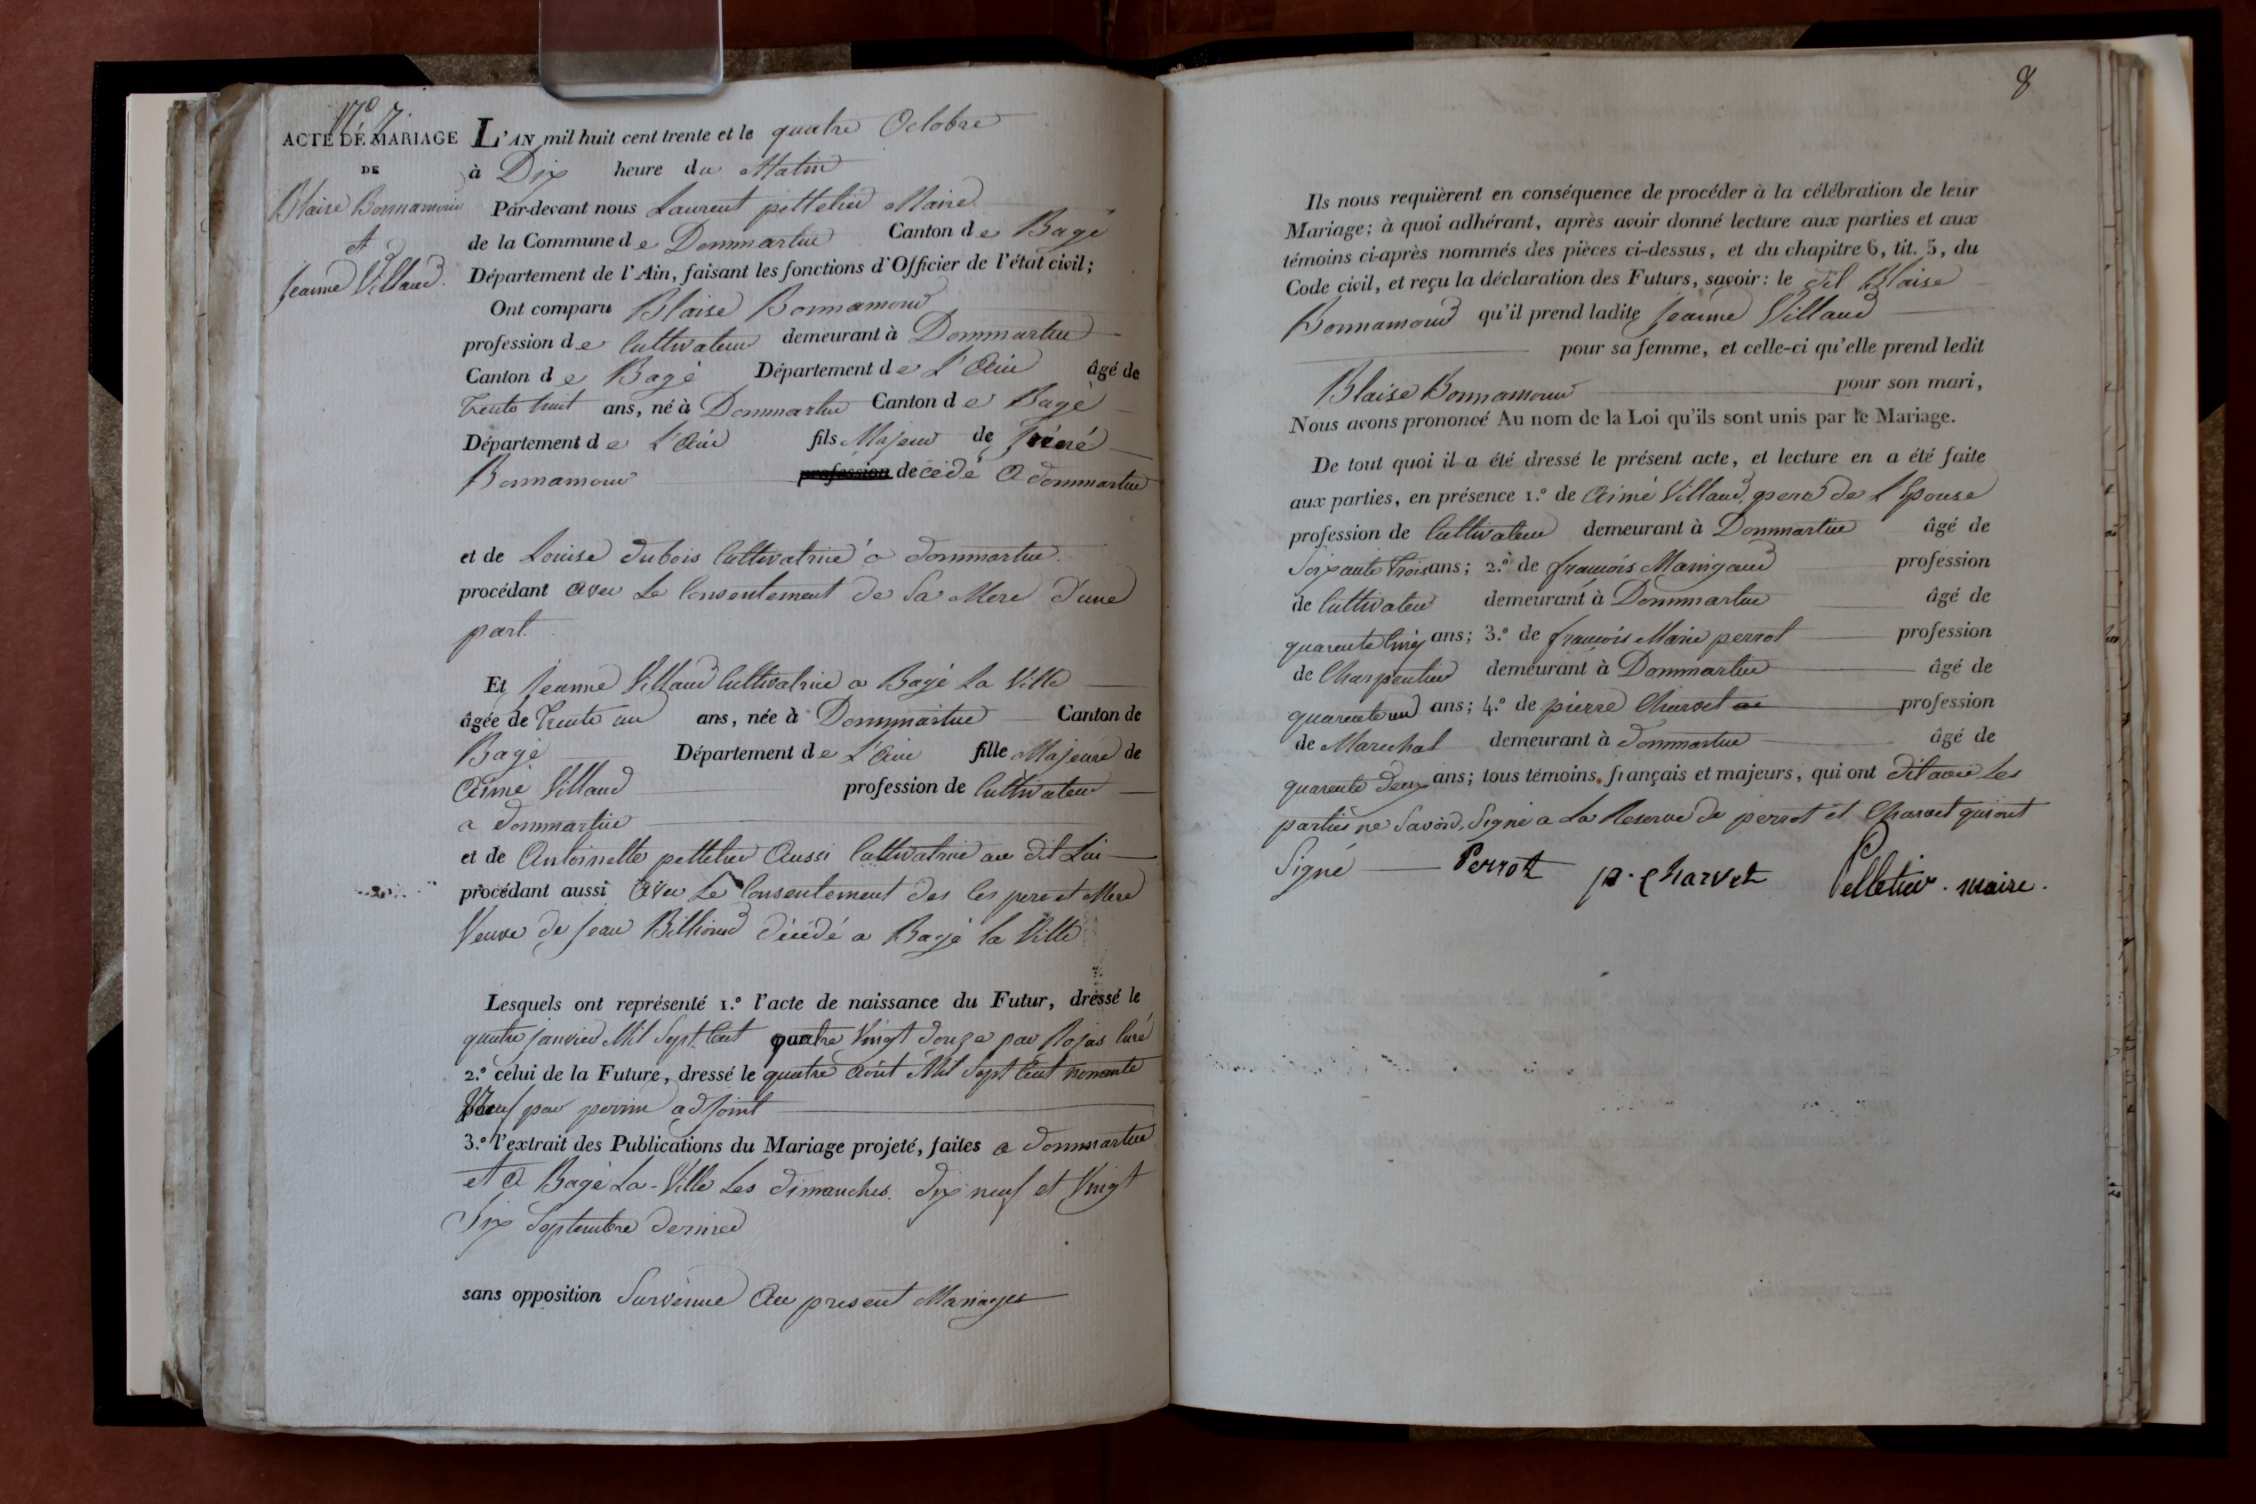 N.º 7.
ACTE DE MARIAGE
DE
Blaise Bonnamour
et
Jeanne Villaud.
L'AN mil huit cent trente et le quatre Octobre
à Dix heure du Matin
Par-devant nous Laurent pelletier Maire
de la Commune de Dommartin Canton de Bagé
Département de l'Ain, faisant les fonctions d'Officier de l'état civil;
Ont comparu Blaise Bonnamour
profession de Cultivateur demeurant à Dommartin
Canton de Bagé Département de L'Ain âgé de
trente huit ans, né à Dommartin Canton de Bagé
Département de L'Ain fils Majeur de
Bonnamour profession décédé a dommartin
et de Louise dubois Cultivatrice a dommartin
procédant avec Le Consentement de Sa Mere d'une
part.
Et Jeanne Villaud Cultivatrice a Bagé La Ville
âgée de trente un ans, née à Dommartin Canton de
Bagé Département de L'Ain fille Majeure de
Aimé Villaud profession de Cultivateur
a dommartin
et de Antoinette pelletier Aussi Cultivatrice au dit Lieu
procédant aussi avec Le Consentement des Ces pere et Mere
Veuve de Jean Billioud décédé a Bagé la Ville
Lesquels ont représenté 1.º l'acte de naissance du Futur, dressé le
quatre janvier Mil Sept Cent quatre Vingt douze par Rojas Curé
2.º celui de la Future, dressé le quatre Août Mil Sept Cent nonante
Neuf par perrin adjoint
3.º l'extrait des Publications du Mariage projeté, faites a dommartin
et a Bagé La-Ville Les dimanches dix neuf et Vingt
Six Septembre dernier
sans opposition Survenue Au present Mariage
8
Ils nous requièrent en conséquence de procéder à la célébration de leur
Mariage; à quoi adhérant, après avoir donné lecture aux parties et aux
témoins ci-après nommés des pièces ci-dessus, et du chapitre 6, tit. 5, du
Code civil, et reçu la déclaration des Futurs, savoir: le dit Blaise
Bonnamour qu'il prend ladite Jeanne Villaud
pour sa femme, et celle-ci qu'elle prend ledit
Blaise Bonnamour pour son mari,
Nous avons prononcé Au nom de la Loi qu'ils sont unis par le Mariage.
De tout quoi il a été dressé le présent acte, et lecture en a été faite
aux parties, en présence 1.º de Aimé Villaud pere de L'Epouse
profession de Cultivateur demeurant à Dommartin âgé de
Soixante trois ans; 2.º de françois Manigaud profession
de Cultivateur demeurant à Dommartin âgé de
quarente Cinq ans; 3.º de françois Marie perrot profession
de Charpentier demeurant à Dommartin âgé de
quarente un ans; 4.º de pierre Charvet profession
de Marechal demeurant à dommartin âgé de
quarente deux ans; tous témoins français et majeurs, qui ont dit avec Les
parties ne Savoir Signé a La Reserve de perrot et Charvet qui ont
Signé Perrot p. Charvet Pelletier . maire .